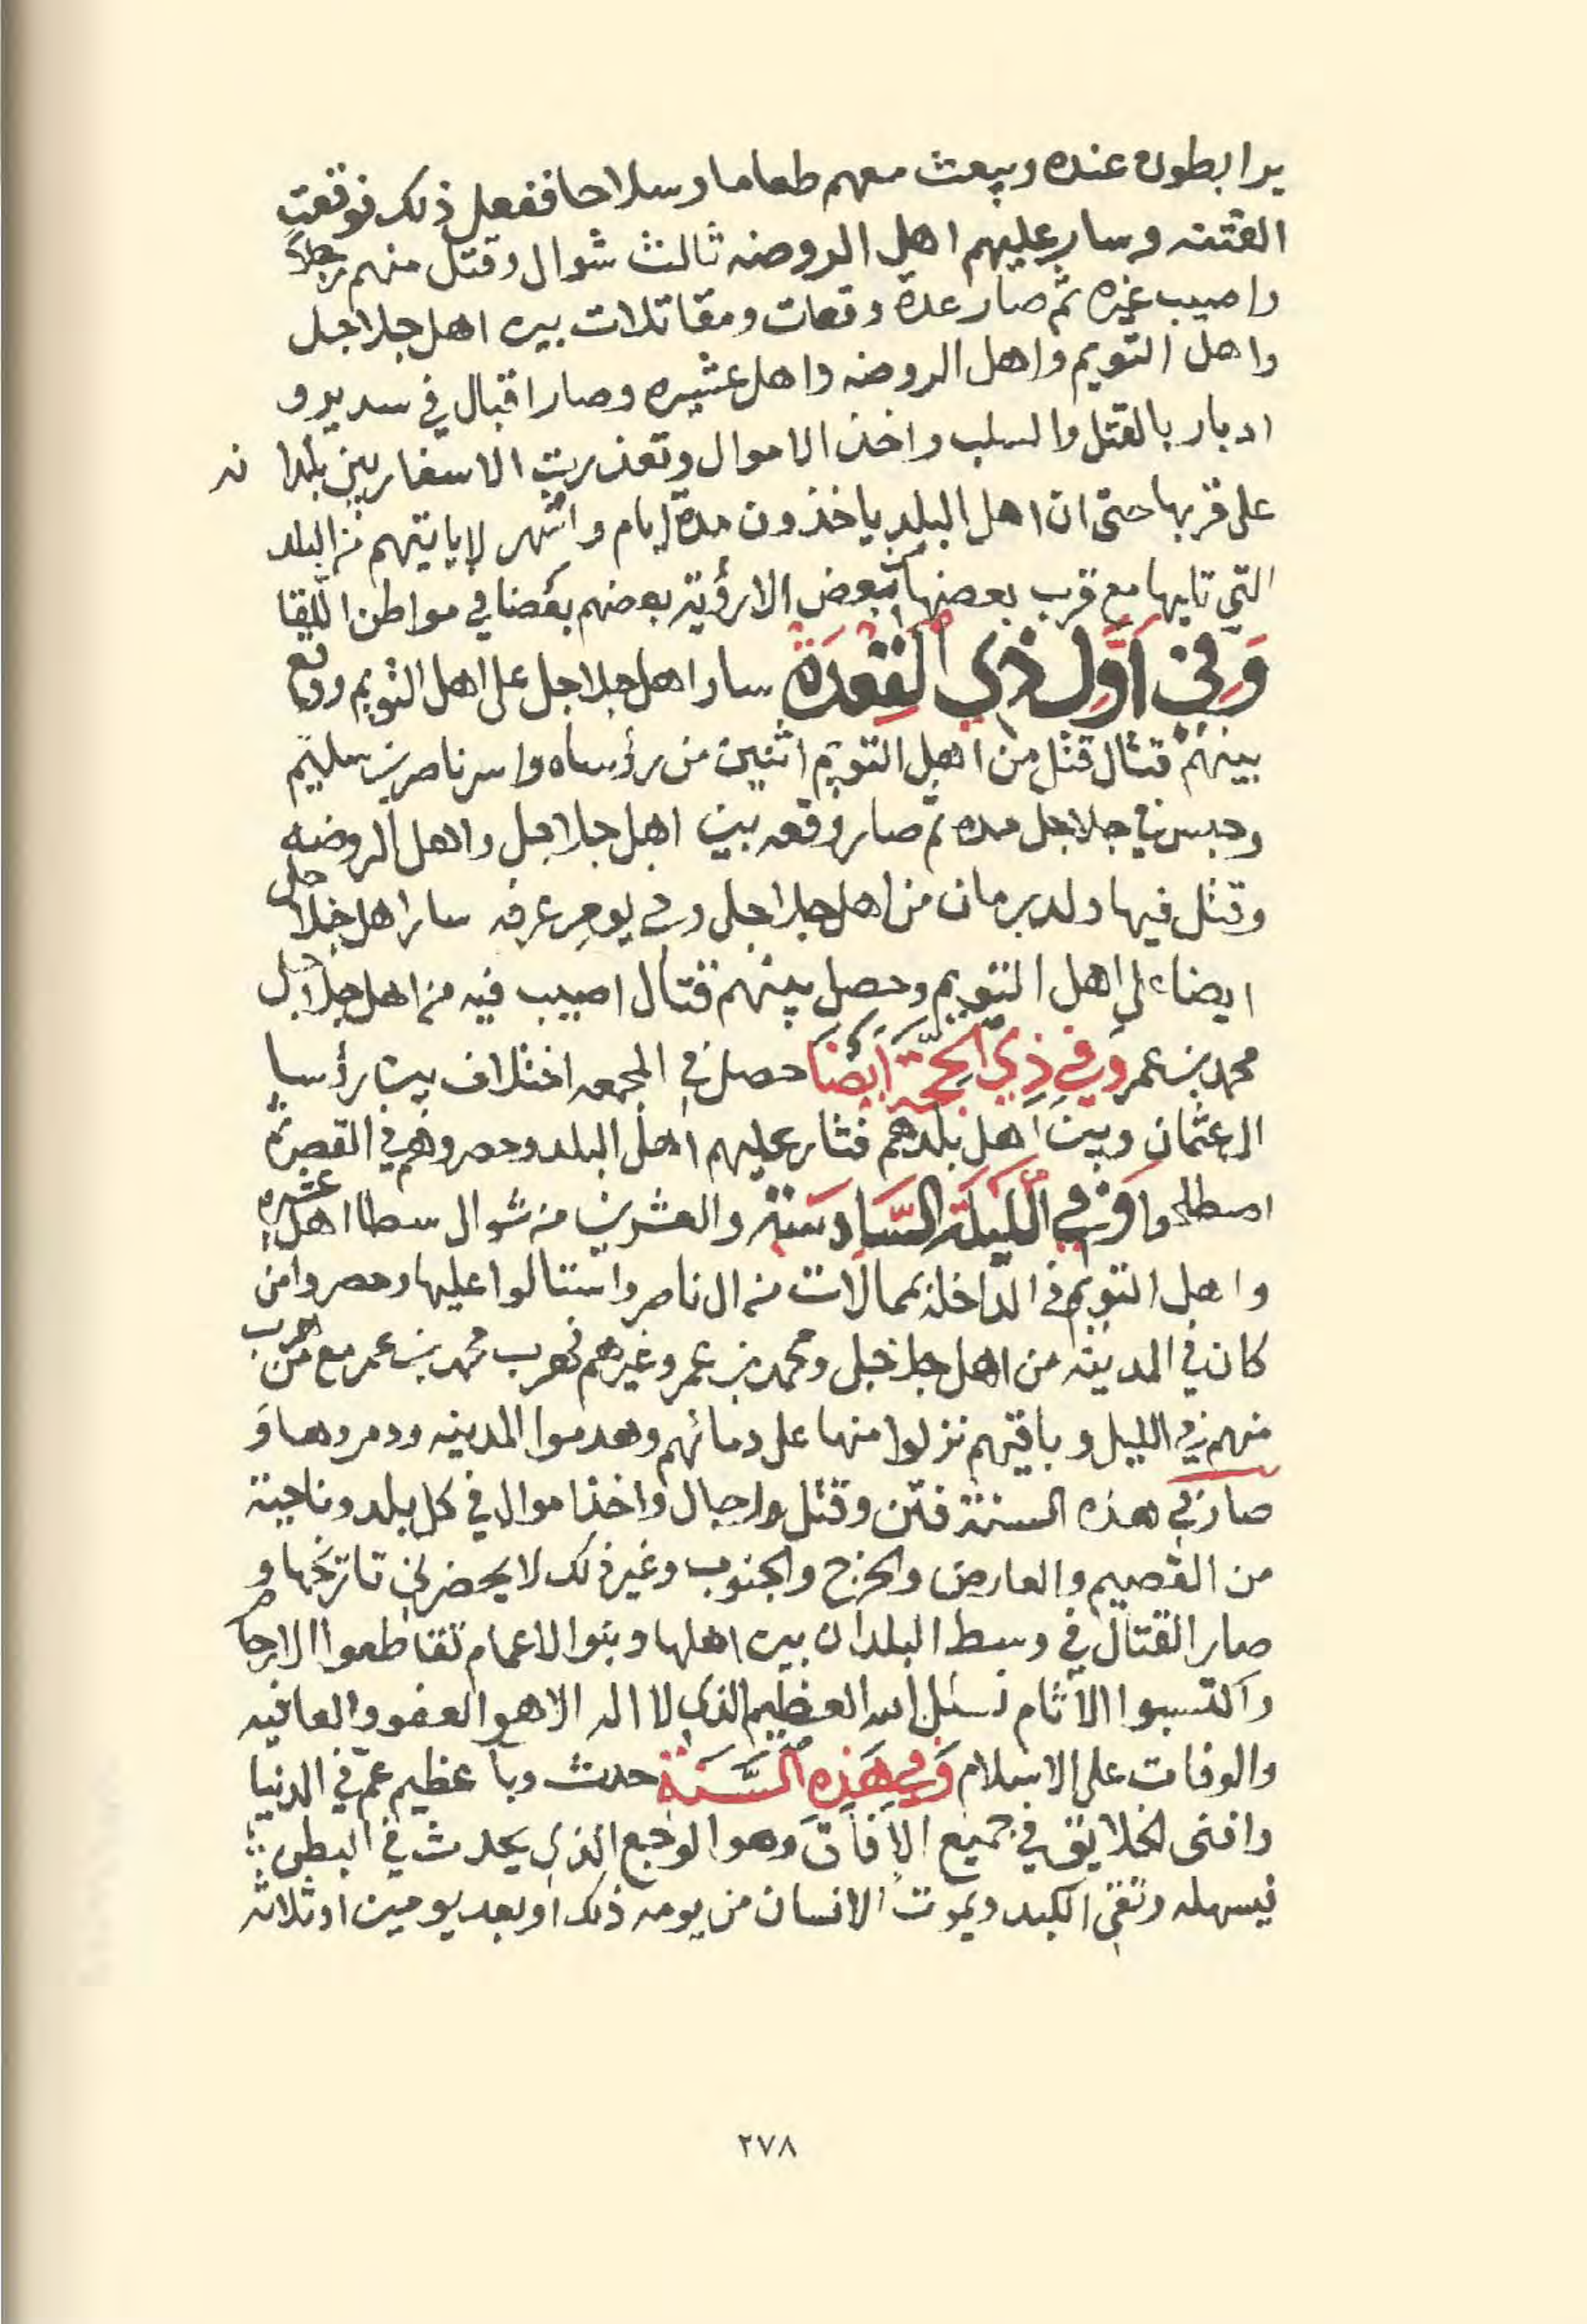 يرابطون عنده ويبعث معهم طعاما وسلاحا ففعل ذلك فوقعت
الفتنه وسار عليهم اهل الروضه ثالث شوال وقتل منهم رجلا
واصيب غيره ثم صار عدة وقعات ومقاتلات بين اهل جلاجل
واهل التويم واهل الروضه واهل عشيره وصار اقبال في سدير و
ادبار بالقتل والسلب واخذ الاموال وتعذرت الاسفار بين بلدانه
على قربها حتى ان اهل البلد ياخذون مدة ايام واشهر لا ياتيهم من البلد
التي تليها مع قرب بعضها بعض الا رؤية بعضهم بعضا في مواطن اللقا
وَفِي اَوَّلِ ذِي الْقِعْدَةِ سار اهل جلاجل على اهل التويم ووقع
بينهم قتال قتل من اهل التويم اثنين من رؤساه واسر ناصر بن سليم
وحبس في جلاجل مده ثم صار وقعه بين اهل جلاجل واهل الروضه
وقتل فيها ولد برمان من اهل جلاجل وفي يوم عرفه سار اهل جلاجل
ايضا على اهل التويم وحصل بينهم قتال اصيب فيه من اهل جلاجل
محمد بن عمر وَفِي ذِي الْحِجَّةِ أَيْضًا حصل في المجمعه اختلاف بين رؤسا
ال عثمان وبين اهل بلدهم فثار عليهم اهل البلد وحصروهم في القصر ثم
اصطلحوا وَفِي اللَّيْلَةِ السَّادِسَة والعشرين من شوال سطا اهل عشيره
واهل التويم في الداخلة بممالات من ال ناصر واستالوا عليها وحصروا من
كان في المدينه من اهل جلاجل ومحمد بن عمر وغيرهم فهرب محمد بن عمر مع من هرب
منهم في الليل وباقيهم نزلوا منها على دمائهم وهدموا المدينه ودمروها و
صار في هذه السنة فتن وقتل رجال واخذ اموال في كل بلد وناحية
من القصيم والعارض والخرج والجنوب وغير ذلك لا يحضرني تاريخها و
صار القتال في وسط البلدان بين اهلها وبنوا الاعمام تقاطعوا الارحام
واكتسبوا الآثام نسئل الله العظيم الذي لا اله الا هو العفو والعافيه
والوفات على الاسلام وَفِي هَذِهِ السَّنَةِ حدث وبآ عظيم عمّ في الدنيا
وافنى الخلايق في جميع الآفاق وهو الوجع الذي يحدث في البطن
فيسهله وتقي الكبد ويموت الانسان من يومه ذلك او بعد يومين او ثلاثه
٢٧٨